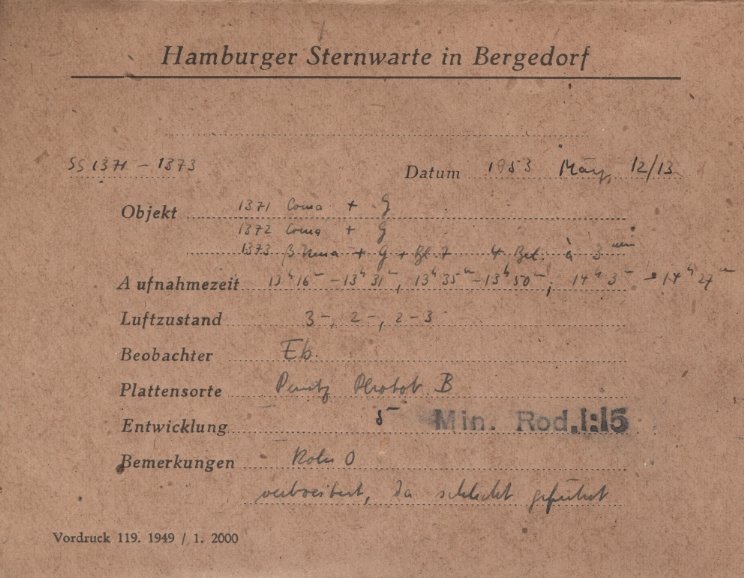 Hamburger Sternwarte in Bergedorf
SS 1371 – 1373 Datum 1953 März 12/13
Objekt 1371 Coma + G
1372 Coma + G
1373 + G + Bl. 7 4 Bel. à 3 min
Aufnahmezeit 13h16m – 13h31m, 13h35m – 13h50m, 14h3m – 14h27m
Luftzustand 3–, 2–, 2–3
Beobachter Eb.
Plattensorte Perutz B
Entwicklung 5 Min. Rod. 1:15
Bemerkungen Rohr O
verbreitert, da schlecht geführt
Vordruck 119. 1949 / 1. 2000